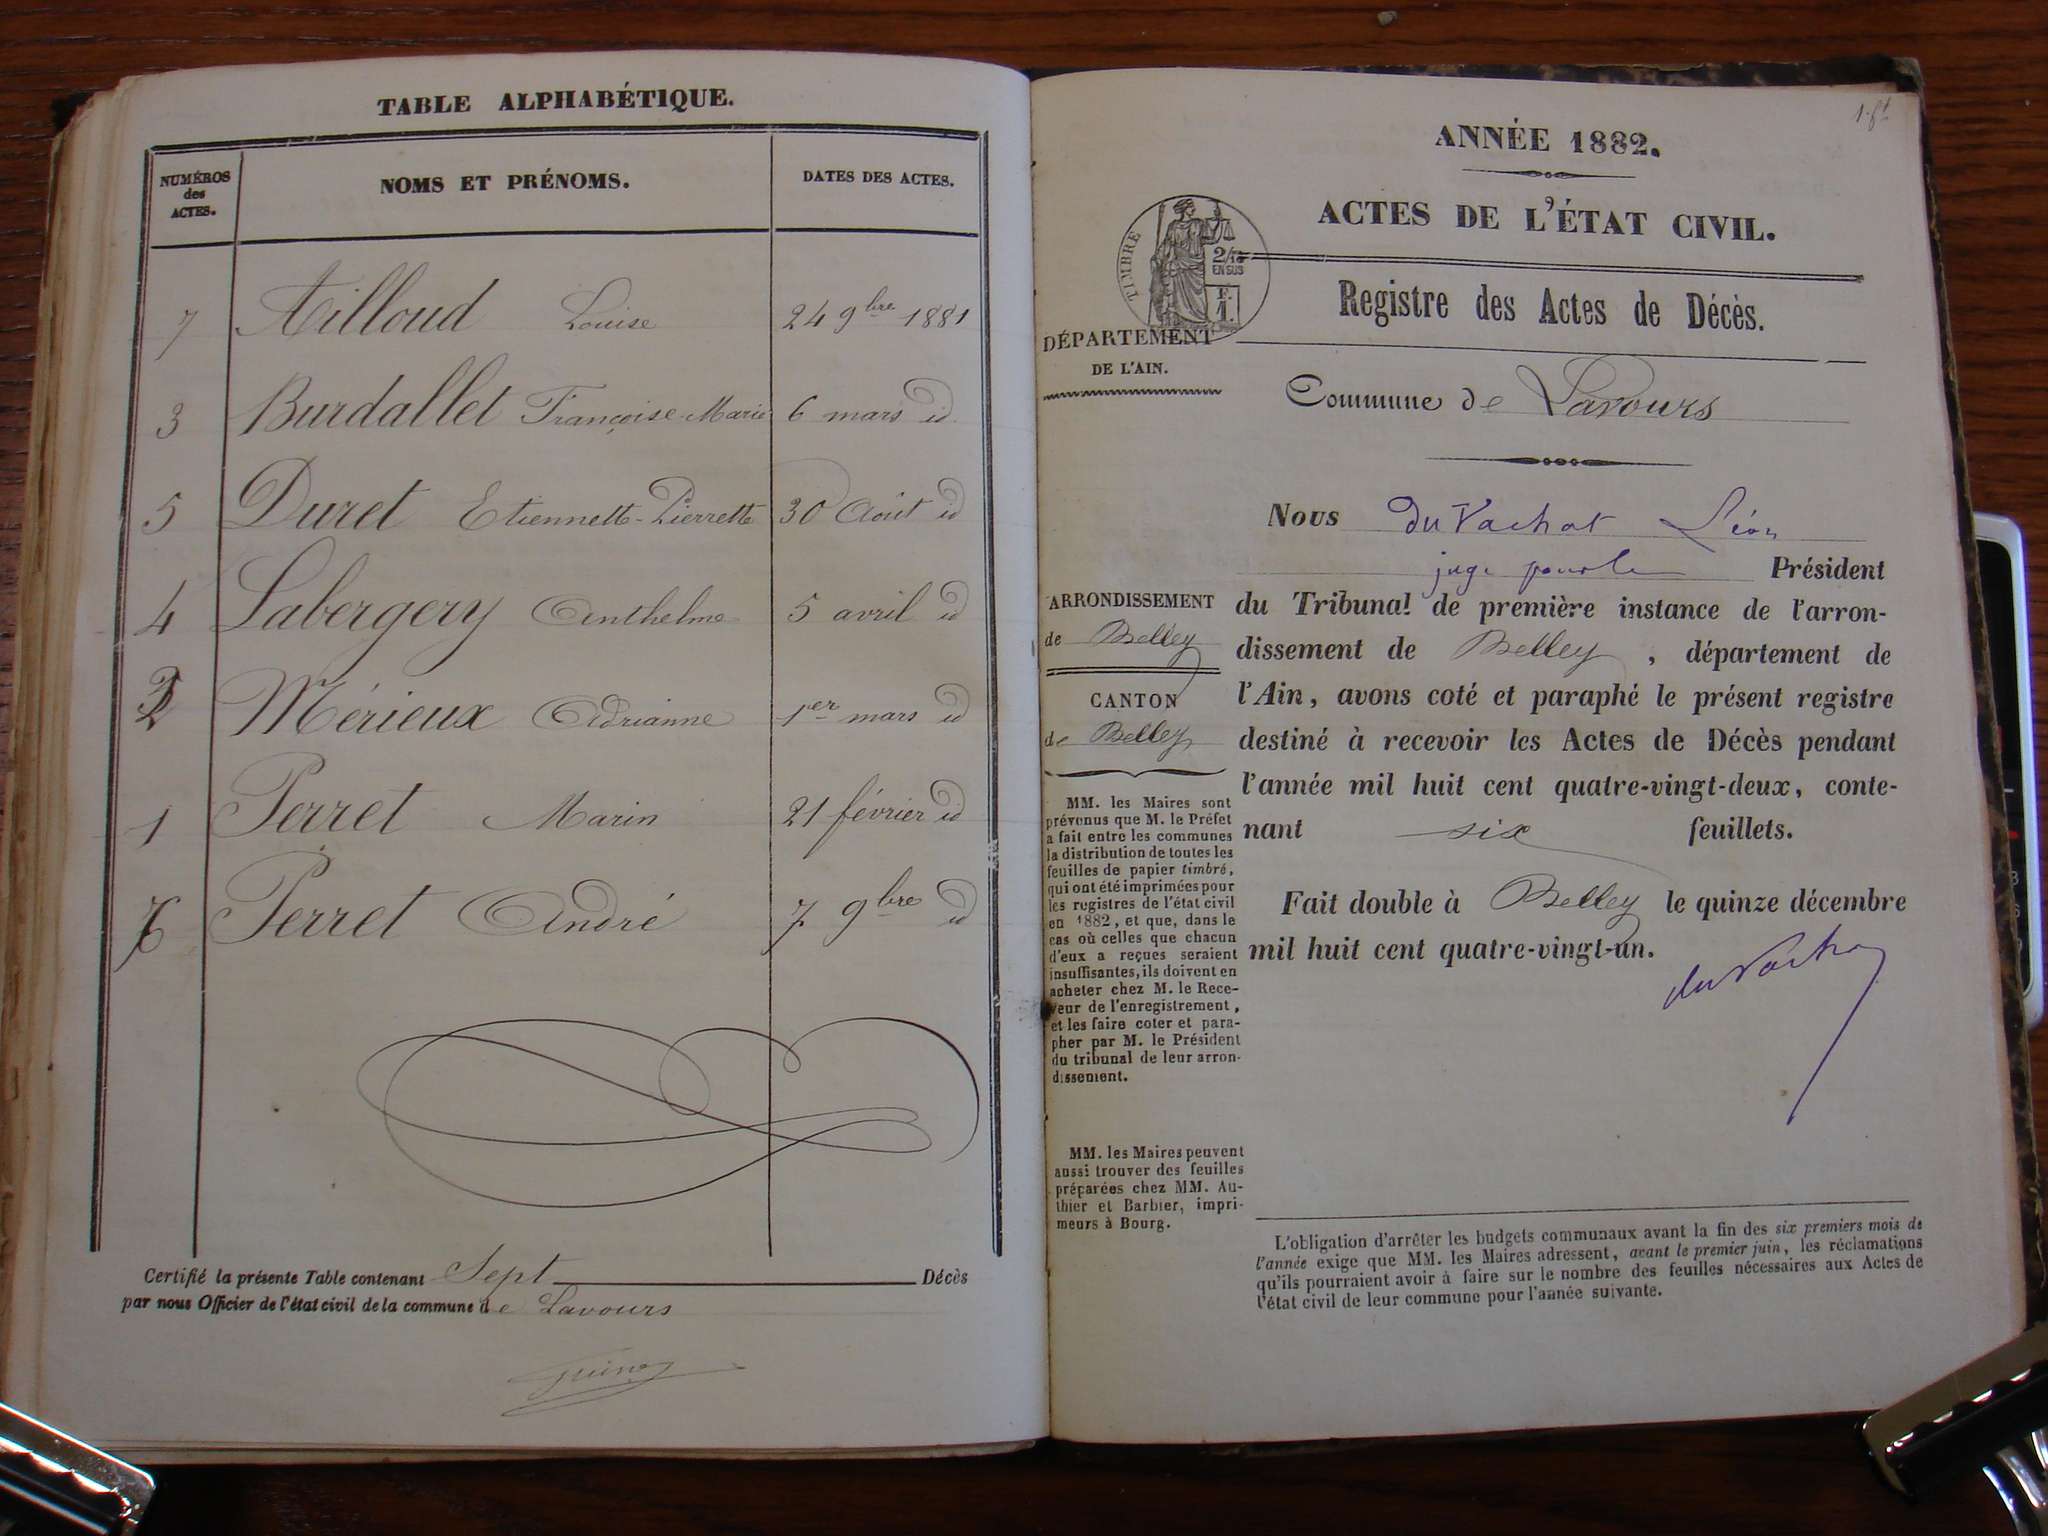 TABLE ALPHABÉTIQUE.
NUMÉROS des ACTES.
NOMS ET PRÉNOMS.
DATES DES ACTES.
7 Ailloud Louise 24 9bre 1881
3 Burdallet Françoise-Marie 6 mars id
5 Duret Etiennette-Pierrette 30 Août id
4 Labergery Anthelme 5 avril id
2 Mérieux Adrianne 1er mars id
1 Perret Marin 21 février id
6 Perret André 7 9bre id
Certifié la présente Table contenant Sept Décès
par nous Officier de l'état civil de la commune de Lavours
ANNÉE 1882.
ACTES DE L'ÉTAT CIVIL.
TIMBRE
2/10
EN SUS
F.
1.
Registre des Actes de Décès.
DÉPARTEMENT
DE L'AIN.
Commune de Lavours
Nous du Vachat Léon
juge pour le Président
du Tribunal de première instance de l'arron-
dissement de Belley, département de
l'Ain, avons coté et paraphé le présent registre
destiné à recevoir les Actes de Décès pendant
l'année mil huit cent quatre-vingt-deux, conte-
nant six feuillets.
Fait double à Belley le quinze décembre
mil huit cent quatre-vingt-un.
du Vachat
ARRONDISSEMENT
de Belley
CANTON
de Belley
MM. les Maires sont
prévenus que M. le Préfet
a fait entre les communes
la distribution de toutes les
feuilles de papier timbré,
qui ont été imprimées pour
les registres de l'état civil
en 1882, et que, dans le
cas où celles que chacun
d'eux a reçues seraient
insuffisantes, ils doivent en
acheter chez M. le Rece-
veur de l'enregistrement,
et les faire coter et para-
pher par M. le Président
du tribunal de leur arron-
dissement.
MM. les Maires peuvent
aussi trouver des feuilles
préparées chez MM. Au-
thier et Barbier, impri-
meurs à Bourg.
L'obligation d'arrêter les budgets communaux avant la fin des six premiers mois de
l'année exige que MM. les Maires adressent, avant le premier juin, les réclamations
qu'ils pourraient avoir à faire sur le nombre des feuilles nécessaires aux Actes de
l'état civil de leur commune pour l'année suivante.